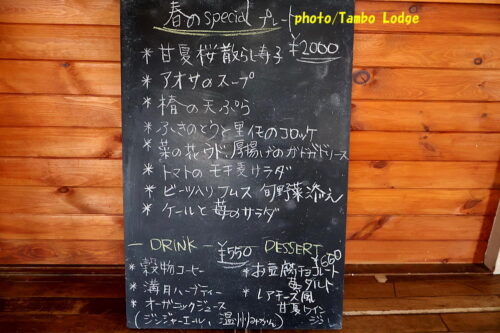 春のspecial プレート
photo/Tambo Lodge
¥2000
* 甘夏桜散らし寿子
* アオサのスープ
* 椿の天ぷら
* ふきのとうと里芋のコロッケ
* 菜の花、ウド、厚揚げのガドガドソース
* トマトのモチ麦サラダ
* ビーツ入りフムス 旬野菜添え
* ケールと苺のサラダ
— DRINK — ¥550
* 穀物コーヒー
* 満月ハーブティー
* オーガニックジュース
(ジンジャーエール、温州みかん)
DESSERT ¥650
* お豆腐チョコレート
苺タルト
* レアチーズ風
甘夏